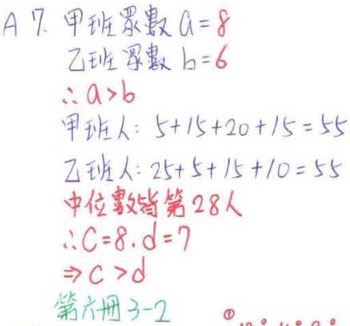 A 7. 甲班眾數 a=8
乙班眾數 b=6
∴ a>b
甲班人: 5+15+20+15=55
乙班人: 25+5+15+10=55
中位數皆第28人
∴ C=8. d=7
⇒ C>d
第六冊 3-2
①